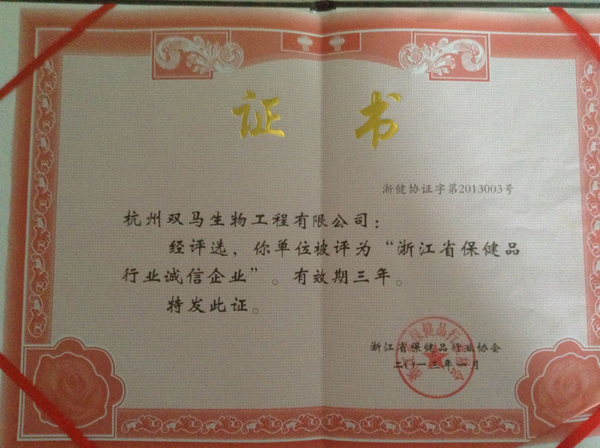 证书
浙健协证字第2013003号
杭州双马生物工程有限公司：
经评选，你单位被评为“浙江省保健品
行业诚信企业”。有效期三年。
特发此证。
浙江省保健品行业协会
二〇一三年一月